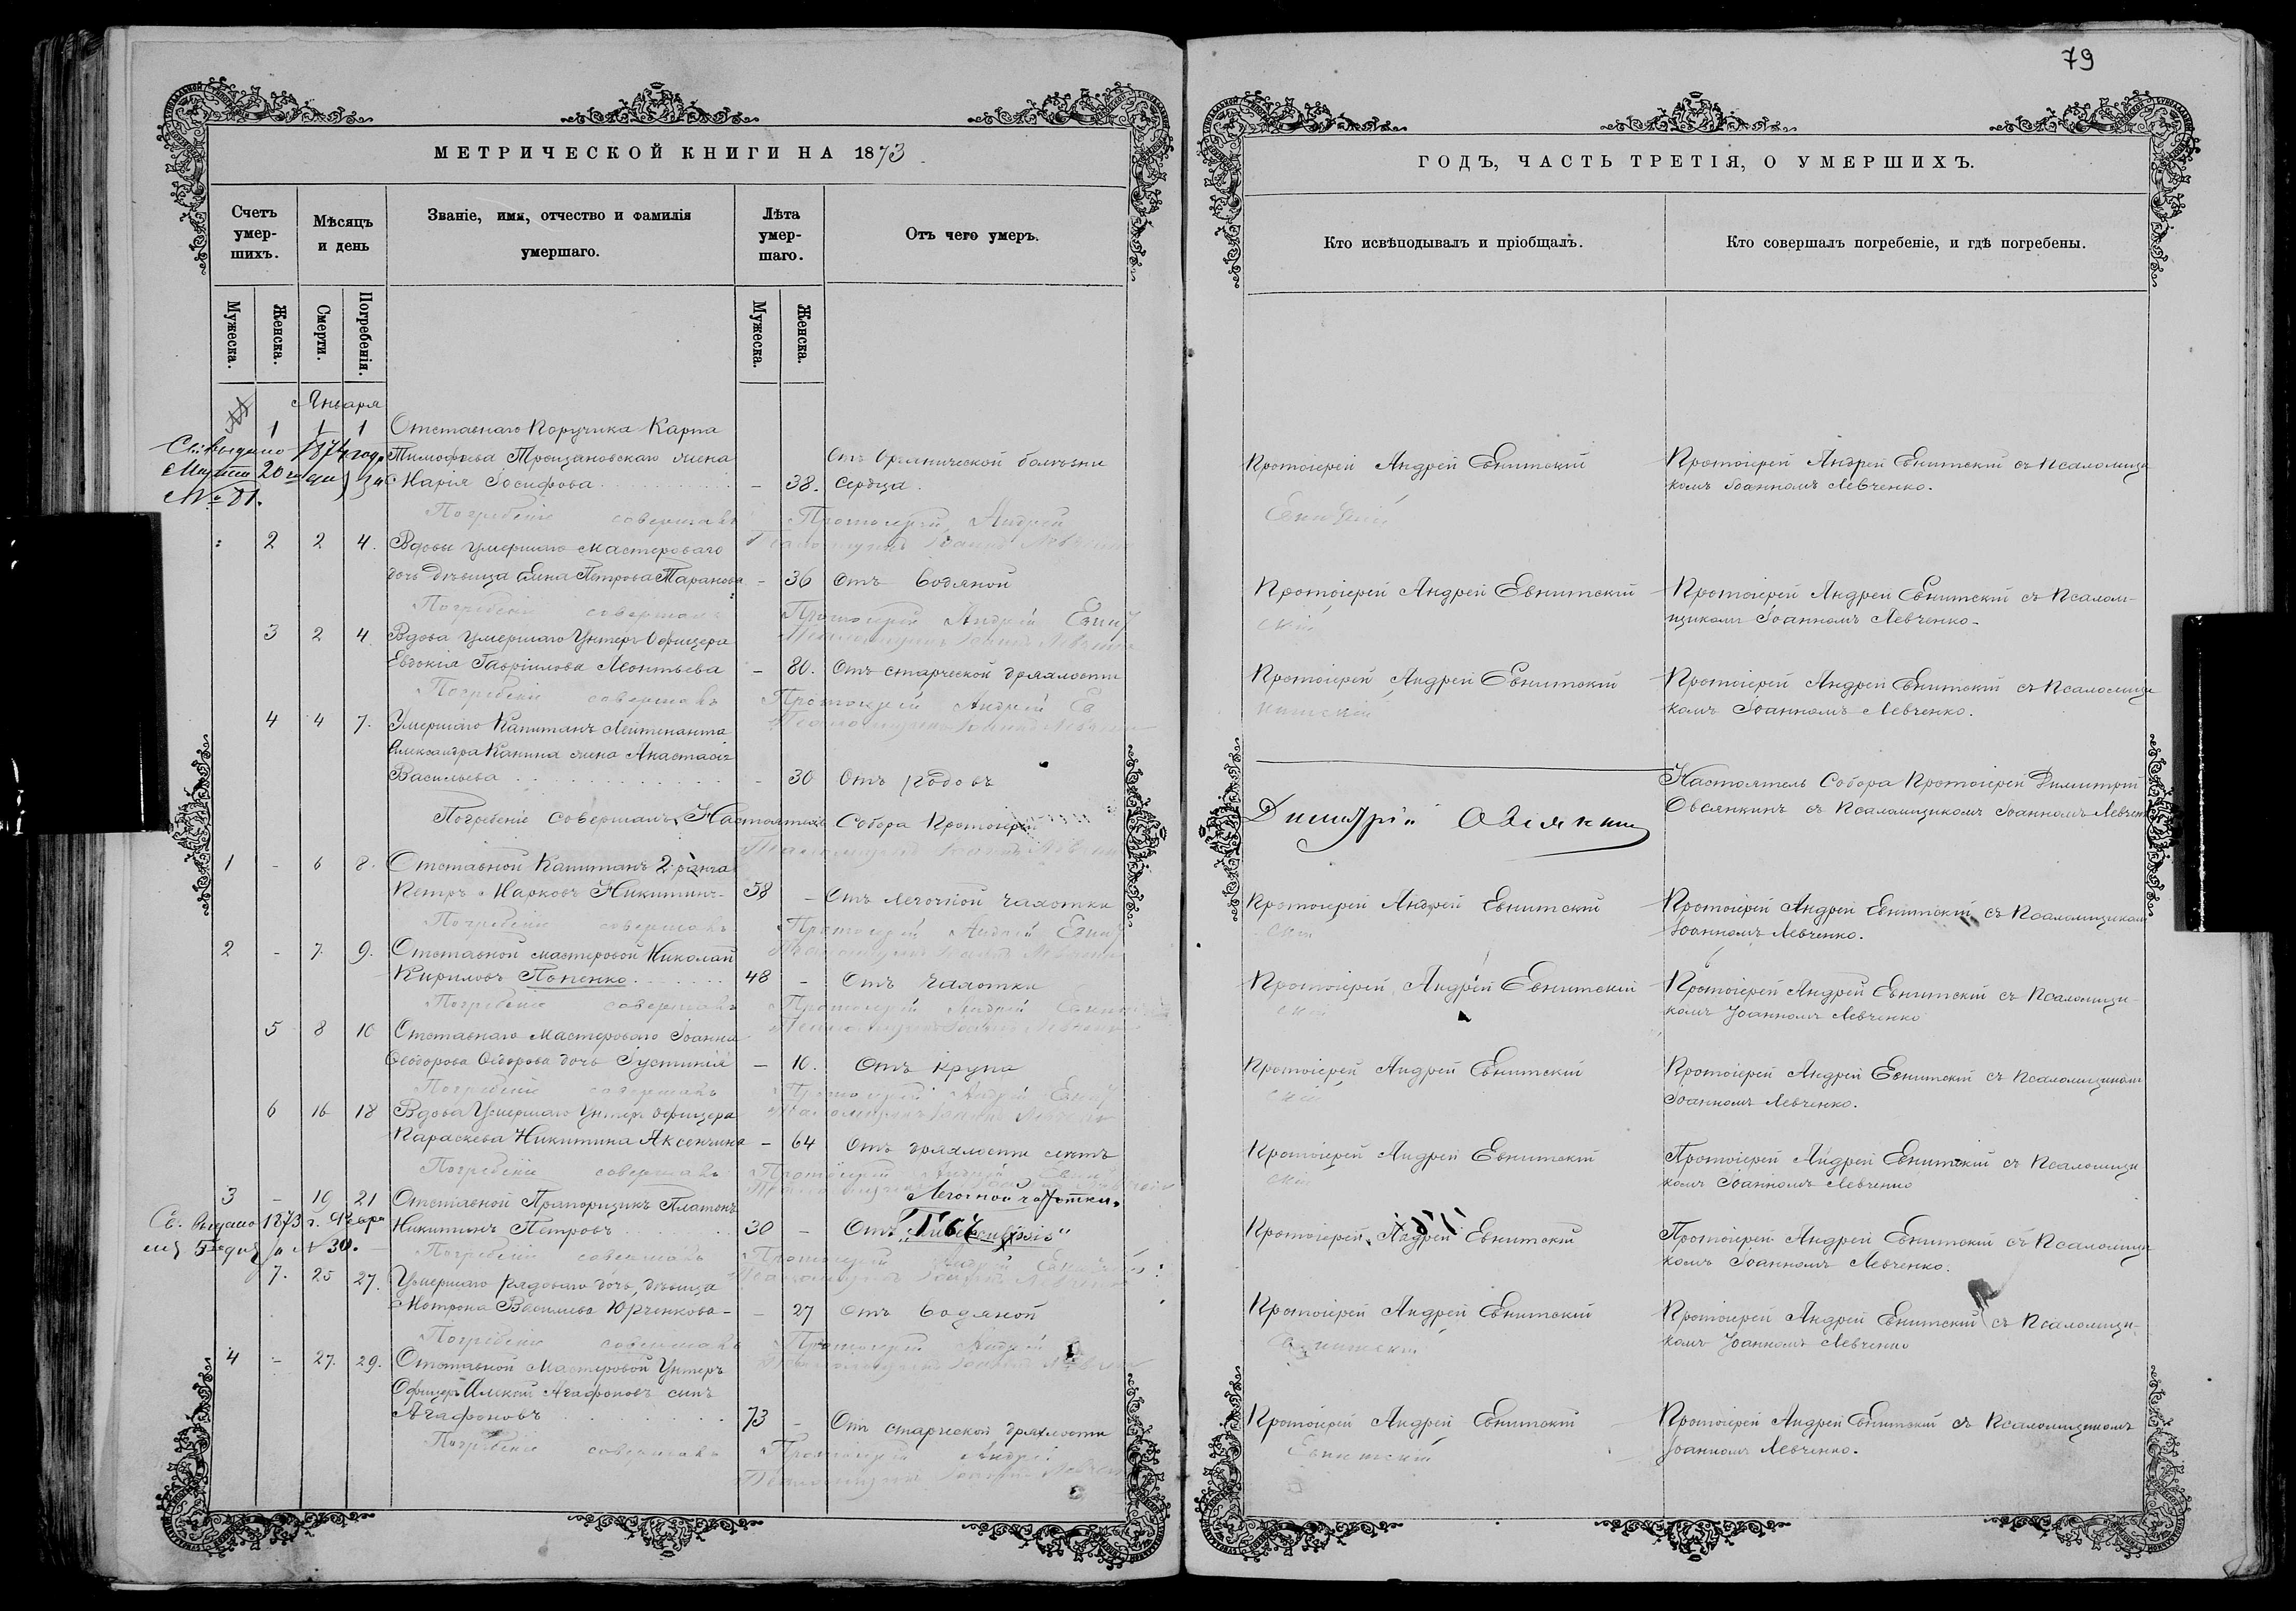 79
МЕТРИЧЕСКОЙ КНИГИ НА 1873
ГОДЪ, ЧАСТЬ ТРЕТІЯ, О УМЕРШИХЪ.
Счетъ умер-шихъ.
Мѣсяцъ и день
Званіе, имя, отчество и фамилія умершаго.
Лѣта умер-шаго.
Отъ чего умеръ.
Кто исвѣподывалъ и пріобщалъ.
Кто совершалъ погребеніе, и гдѣ погребены.
Мужеска. Женска. Смерти. Погребенія. Мужеска. Женска.
Января
1 1 1 Отставнаго Поручика Карпа
Св: выдано 1874 года
Марта 20 го дня за
№ 81.
Тимофеева Трощановскаго жена
Марія Іосифова - 38.
Отъ Органической болѣзни
сердца.
Протоіерей Андрей Евнитскій
Протоіерей Андрей Евнитскій съ Псаломщи
комъ Іоанномъ Левченко.
Погребеніе совершалъ Протоіерей Андрей Евнитскій
Псаломщикъ Іоаннъ Левченко
2 2 4. Вдовы умершаго мастероваго
дочь дѣвица Елена Петрова Таранова - 36 Отъ водяной
Протоіерей Андрей Евнитскій
Протоіерей Андрей Евнитскій съ Псалом-
щикомъ Іоанномъ Левченко.
Погребеніе совершалъ Протоіерей Андрей Евнитскій
Псаломщикъ Іоаннъ Левченко
3 2 4. Вдова умершаго Унтеръ Офицера
Евдокія Гавріилова Леонтьева - 80. Отъ старческой дряхлости
Протоіерей Андрей Евнитскій
Протоіерей Андрей Евнитскій съ Псаломщи
комъ Іоанномъ Левченко.
Погребеніе совершалъ Протоіерей Андрей Евнитскій
Псаломщикъ Іоаннъ Левченко
4 4 7. Умершаго Капитанъ Лейтенанта
Александра Канина жена Анастасія
Васильева - 30 Отъ родовъ
Настоятель Собора Протоіерей Димитрій
Овсянкинъ съ Псаломщикомъ Іоанномъ Левченк
Погребеніе совершалъ Настоятель Собора Протоіерей Димитрій Овсянкинъ
Псаломщикъ Іоаннъ Левченко
1 - 6 8. Отставной Капитанъ 2 ранга
Петръ Марковъ Никитинъ 58 - Отъ легочной чахотки
Протоіерей Андрей Евнитскій
Протоіерей Андрей Евнитскій съ Псаломщиком
Іоанномъ Левченко.
Погребеніе совершалъ Протоіерей Андрей Евнитскій
Псаломщикъ Іоаннъ Левченко
2 - 7. 9. Отставной мастеровой Николай
Кириловъ Попенко 48 - Отъ чахотки
Протоіерей Андрей Евнитскій
Протоіерей Андрей Евнитскій съ Псаломщи-
комъ Іоанномъ Левченко
Погребеніе совершалъ Протоіерей Андрей Евнитскій
Псаломщикъ Іоаннъ Левченко
5 8 10 Отставнаго Мастероваго Іоанна
Ѳеодорова Ѳедорова дочь Іустинія - 10. Отъ крупа
Протоіерей Андрей Евнитскій
Протоіерей Андрей Евнитскій съ Псаломщиком
Іоанномъ Левченко.
Погребеніе совершалъ Протоіерей Андрей Евнитскій
Псаломщикъ Іоаннъ Левченко
6 16 18 Вдова Умершаго Унтеръ Офицера
Параскева Никитина Аксенчина - 64 Отъ дряхлости летъ
Протоіерей Андрей Евнитскій
Протоіерей Андрей Евнитскій съ Псаломщи
комъ Іоанномъ Левченко
Погребеніе совершалъ Протоіерей Андрей Евнитскій
Псаломщикъ Іоаннъ Левченко
3 - 19 21 Отставной Прапорщикъ Платонъ
Легочной чахотки.
Св. выдано 1873 г.
№ 30.
Никитинъ Петровъ 30 - Отъ
Протоіерей Андрей Евнитскій
Протоіерей Андрей Евнитскій съ Псаломщи
комъ Іоанномъ Левченко.
Погребеніе совершалъ Протоіерей Андрей Евнитскій
Псаломщикъ Іоаннъ Левченко
7. 25 27. Умершаго рядоваго дочь, дѣвица
Мотрона Васильева Юрченкова - 27 Отъ водяной
Протоіерей Андрей Евнитскій
Протоіерей Андрей Евнитскій съ Псаломщи-
комъ Іоанномъ Левченко
Погребеніе совершалъ Протоіерей Андрей Евнитскій
Псаломщикъ Іоаннъ Левченко
4 - 27. 29. Отставной Мастеровой Унтеръ
Офицеръ Алексей Агафоновъ сынъ
Агафоновъ 73 - Отъ старческой дряхлости
Протоіерей Андрей Евнитскій
Протоіерей Андрей Евнитскій съ Псаломщикомъ
Іоанномъ Левченко.
Погребеніе совершалъ Протоіерей Андрей Евнитскій
Псаломщикъ Іоаннъ Левченко